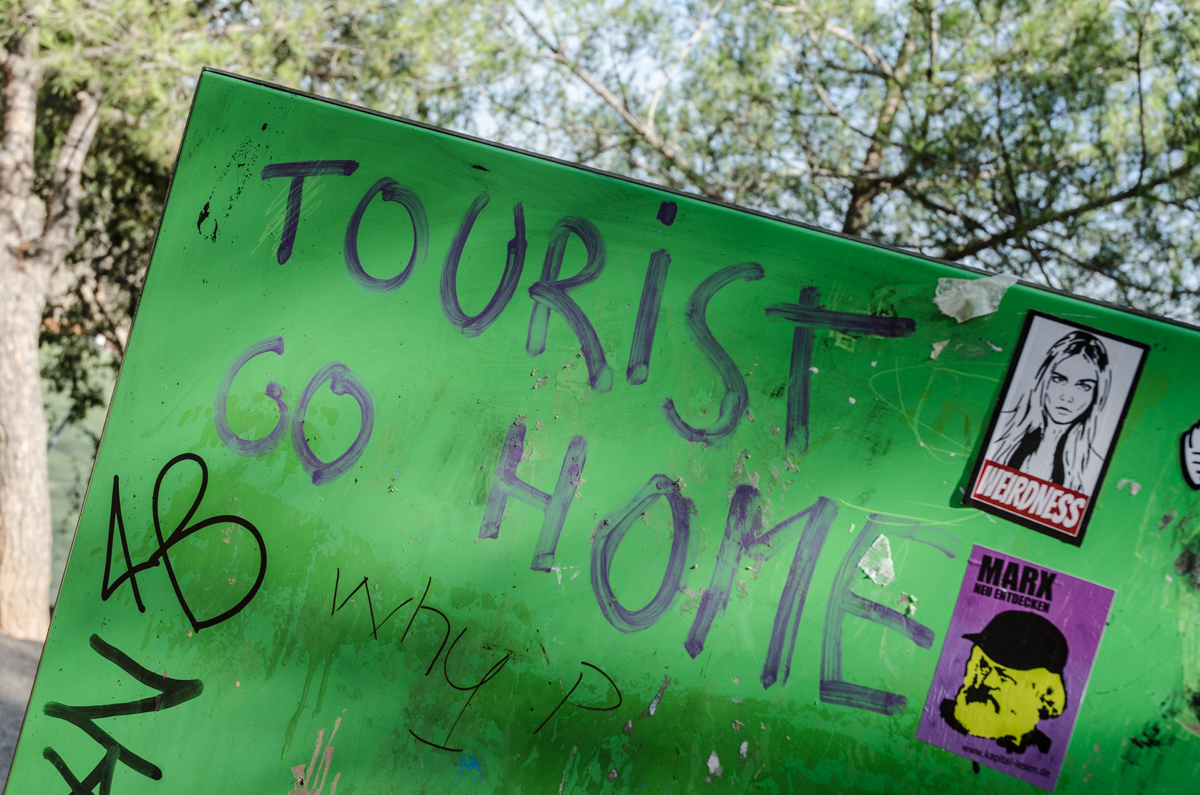 TOURIST
GO HOME
AB
Why
WEIRDNESS
MARX
NEU ENTDECKEN
www.kapital-lesen.de